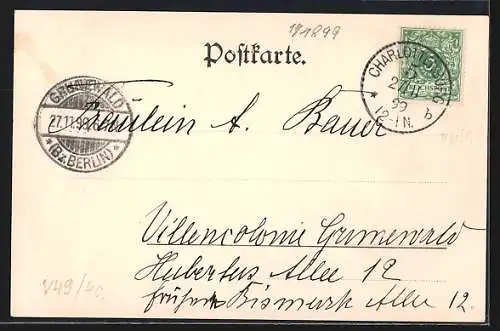 191899
Postkarte.
CHARLOTTENBURG
27/11
99
* 12-1N. b
GRUNEWALD
27.11.99
* (Bz. BERLIN) *
Fräulein A. Bauer
Villencolonie Grunewald
Hubertus Allee 12
früher Bismarck Allee 12.
V49/40